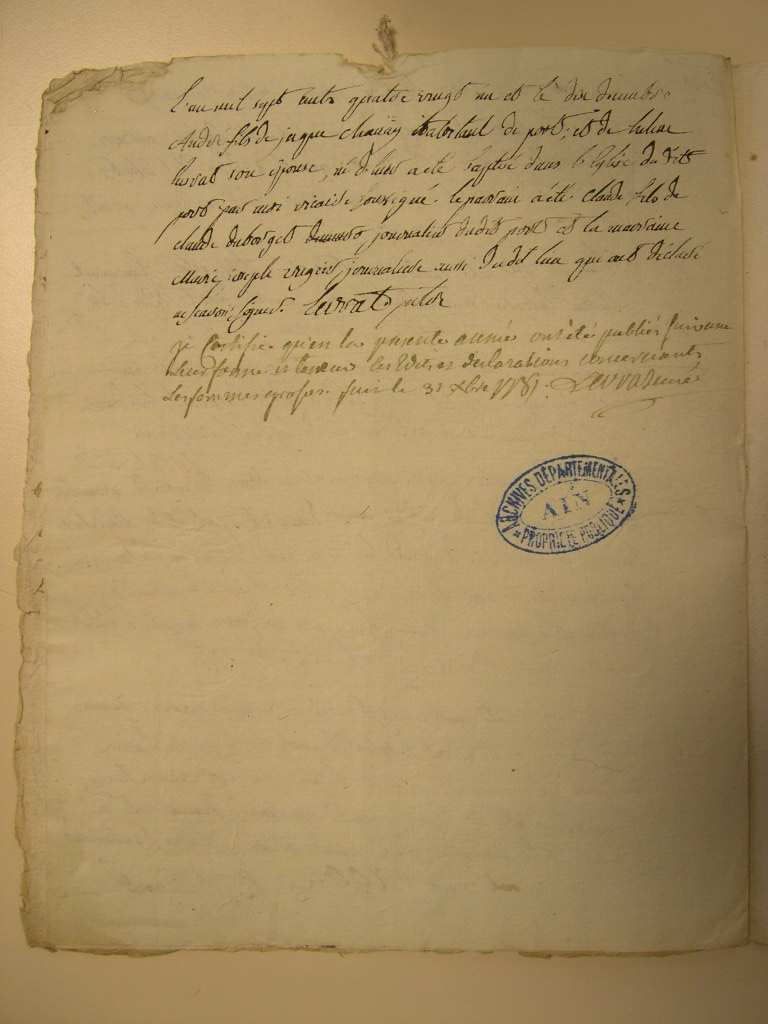 L'an mil sept cents quatre vingt un et le dix decembre
Andre fils de jacque habitant de port, et de
son epouse, né d'hier a eté baptisé dans l'Eglise dudit
port par moi vicaire soussigné. le parrain a été Claude fils de
claude duborget journalier dudit port et la marraine
Marie journaliere aussi dudit lieu qui ont déclaré
ne scavoir signer. Levrat
je Certifie qu'en la presente année ont été publiés suivant
leur forme et teneur les Edits et declarations concernants
les femmes grosses. fait le 31 Xbre 1781. Levrat curé
ARCHIVES DÉPARTEMENTALES
AIN
* PROPRIÉTÉ PUBLIQUE *